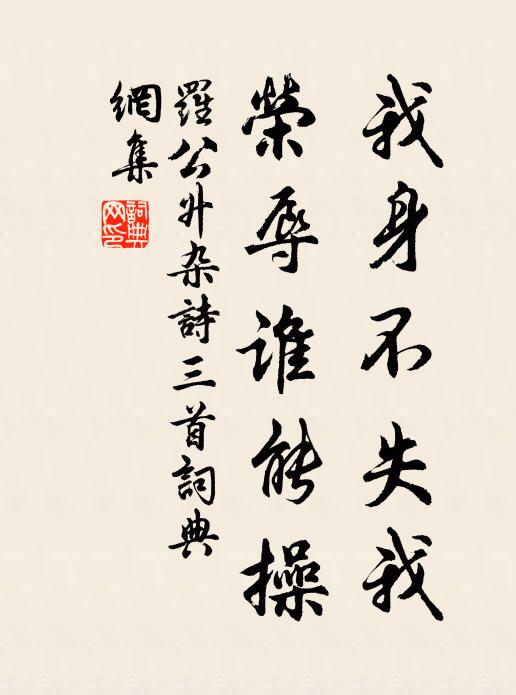 我身不失我
榮辱誰能操
羅公升杂詩三首詞典
網集
詞典网印